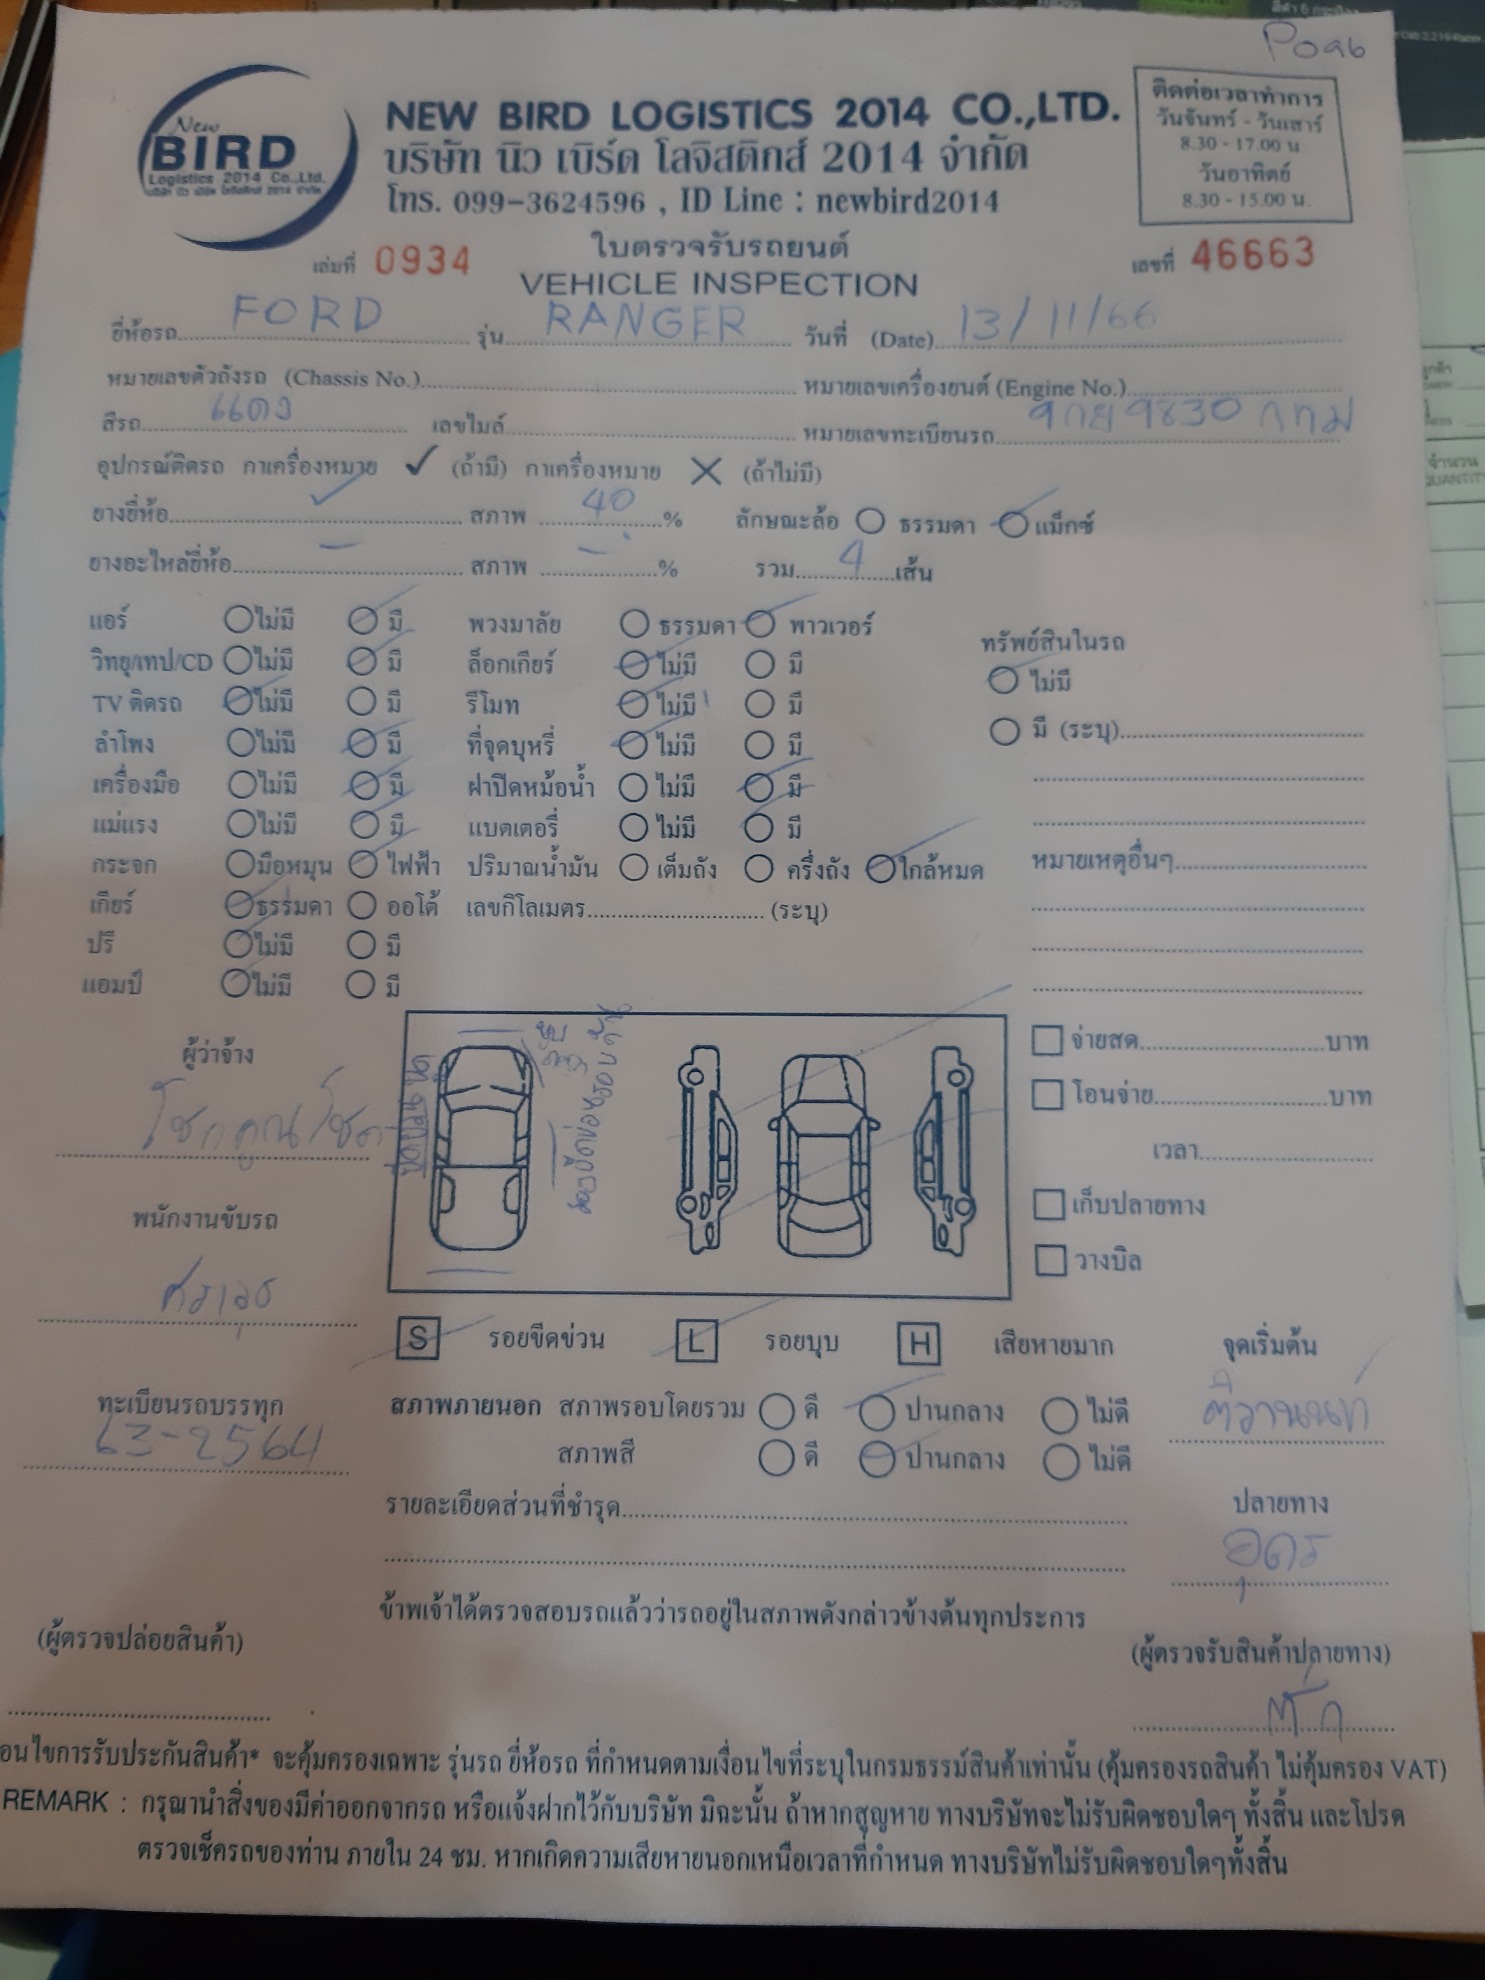 Poab
New
BIRD
Logistics 2014 Co.,Ltd.
บริษัท นิว เบิร์ด โลจิสติกส์ 2014 จำกัด
NEW BIRD LOGISTICS 2014 CO.,LTD.
บริษัท นิว เบิร์ด โลจิสติกส์ 2014 จำกัด
โทร. 099-3624596 , ID Line : newbird2014
ติดต่อเวลาทำการ
วันจันทร์ - วันเสาร์
8.30 - 17.00 น.
วันอาทิตย์
8.30 - 15.00 น.
เล่มที่ 0934
ใบตรวจรับรถยนต์
VEHICLE INSPECTION
เลขที่ 46663
ยี่ห้อรถ FORD รุ่น RANGER วันที่ (Date) 13/11/66
หมายเลขตัวถังรถ (Chassis No.) หมายเลขเครื่องยนต์ (Engine No.)
สีรถ แดง เลขไมล์ หมายเลขทะเบียนรถ 9830 กทม
อุปกรณ์ติดรถ กาเครื่องหมาย ✓ (ถ้ามี) กาเครื่องหมาย ✕ (ถ้าไม่มี)
ยางยี่ห้อ ✓ สภาพ 40 % ลักษณะล้อ ธรรมดา แม็กซ์
ยางอะไหล่ยี่ห้อ - สภาพ - % รวม 4 เส้น
แอร์ ไม่มี มี พวงมาลัย ธรรมดา พาวเวอร์
วิทยุ/เทป/CD ไม่มี มี ล็อกเกียร์ ไม่มี มี
TV ติดรถ ไม่มี มี รีโมท ไม่มี มี
ลำโพง ไม่มี มี ที่จุดบุหรี่ ไม่มี มี
เครื่องมือ ไม่มี มี ฝาปิดหม้อน้ำ ไม่มี มี
แม่แรง ไม่มี มี แบตเตอรี่ ไม่มี มี
กระจก มือหมุน ไฟฟ้า ปริมาณน้ำมัน เต็มถัง ครึ่งถัง ใกล้หมด
เกียร์ ธรรมดา ออโต้ เลขกิโลเมตร (ระบุ)
ปรี ไม่มี มี
แอมป์ ไม่มี มี
ทรัพย์สินในรถ
ไม่มี
มี (ระบุ)
หมายเหตุอื่นๆ
ผู้ว่าจ้าง
โชคคูณโชค
พนักงานขับรถ
ศราวุธ
ทะเบียนรถบรรทุก
63-2564
จ่ายสด บาท
โอนจ่าย บาท
เวลา
เก็บปลายทาง
วางบิล
S รอยขีดข่วน L รอยบุบ H เสียหายมาก
สภาพภายนอก สภาพรอบโดยรวม ดี ปานกลาง ไม่ดี
สภาพสี ดี ปานกลาง ไม่ดี
รายละเอียดส่วนที่ชำรุด
จุดเริ่มต้น
ติวานนท์
ปลายทาง
อุดร
ข้าพเจ้าได้ตรวจสอบรถแล้วว่ารถอยู่ในสภาพดังกล่าวข้างต้นทุกประการ
(ผู้ตรวจปล่อยสินค้า)
(ผู้ตรวจรับสินค้าปลายทาง)
อนไขการรับประกันสินค้า* จะคุ้มครองเฉพาะ รุ่นรถ ยี่ห้อรถ ที่กำหนดตามเงื่อนไขที่ระบุในกรมธรรม์สินค้าเท่านั้น (คุ้มครองรถสินค้า ไม่คุ้มครอง VAT)
REMARK : กรุณานำสิ่งของมีค่าออกจากรถ หรือแจ้งฝากไว้กับบริษัท มิฉะนั้น ถ้าหากสูญหาย ทางบริษัทจะไม่รับผิดชอบใดๆ ทั้งสิ้น และโปรด
ตรวจเช็ครถของท่าน ภายใน 24 ชม. หากเกิดความเสียหายนอกเหนือเวลาที่กำหนด ทางบริษัทไม่รับผิดชอบใดๆทั้งสิ้น